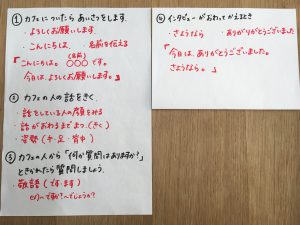 ① カフェについたらあいさつをします.
・よろしくお願いします.
・こんにちは.　・名前を伝える
(名前)
「こんにちは。○○○です。
今日は、よろしくお願いします。」
② カフェの人の話をきく.
・話をしている人の顔をみる
・話がおわるまでまつ.(きく)
・姿勢(手・足・背中)
③ カフェの人から「何か質問はありますか?」
ときかれたら質問しましょう.
・敬語(です・ます)
〜ですか?〜でしょうか?
④ インタビューがおわってかえるとき
・さようなら　・ありがりがとうございました
「今日は、ありがとうございました。
さようなら。」